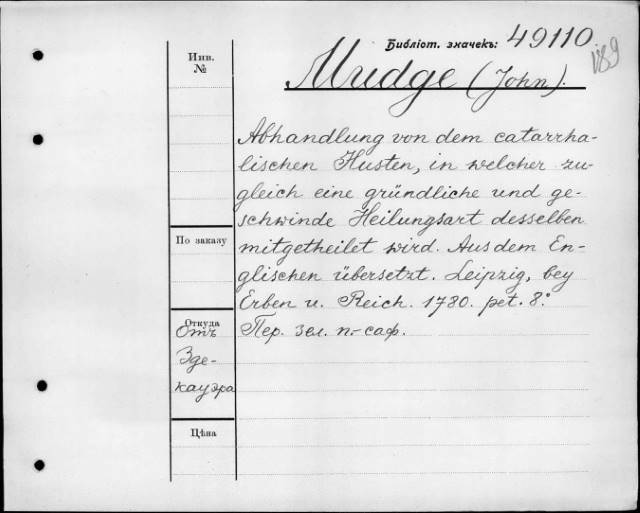 Библіот. значекъ: 49110
189
Инв.
№
Mudge (John).
Abhandlung von dem catarrha-
lischen Husten, in welcher zu-
gleich eine gründliche und ge-
schwinde Heilungsart desselben
mitgetheilet wird. Aus dem En-
glischen übersetzt. Leipzig, bey
Erben u. Reich. 1780. pet. 8°.
Пер. зел. п.-саф.
По заказу
Откуда
Отъ
Зде-
кауэра
Цѣна